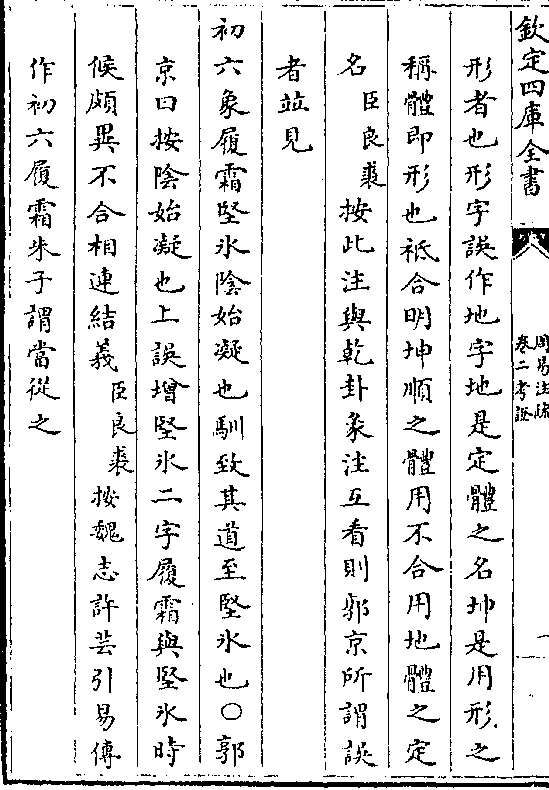 欽定四庫全書
周易注疏
卷二考證
形者也形字誤作地字地是定體之名坤是用形之
稱體即形也祇合明坤順之體用不合用地體之定
名臣良裘按此注與乾卦象注互看則郭京所謂誤
者竝見
初六象履霜堅氷陰始凝也馴致其道至堅氷也○郭
京曰按陰始凝也上誤增堅氷二字履霜與堅氷時
候頗異不合相連結義臣良裘按魏志許芸引易傳
作初六履霜朱子謂當從之